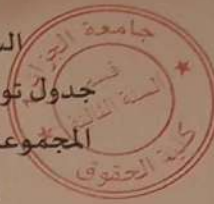 جامعة الجزائر
قسم
السنة الثانية
كلية الحقوق
ال
جدول تو
المجموعة